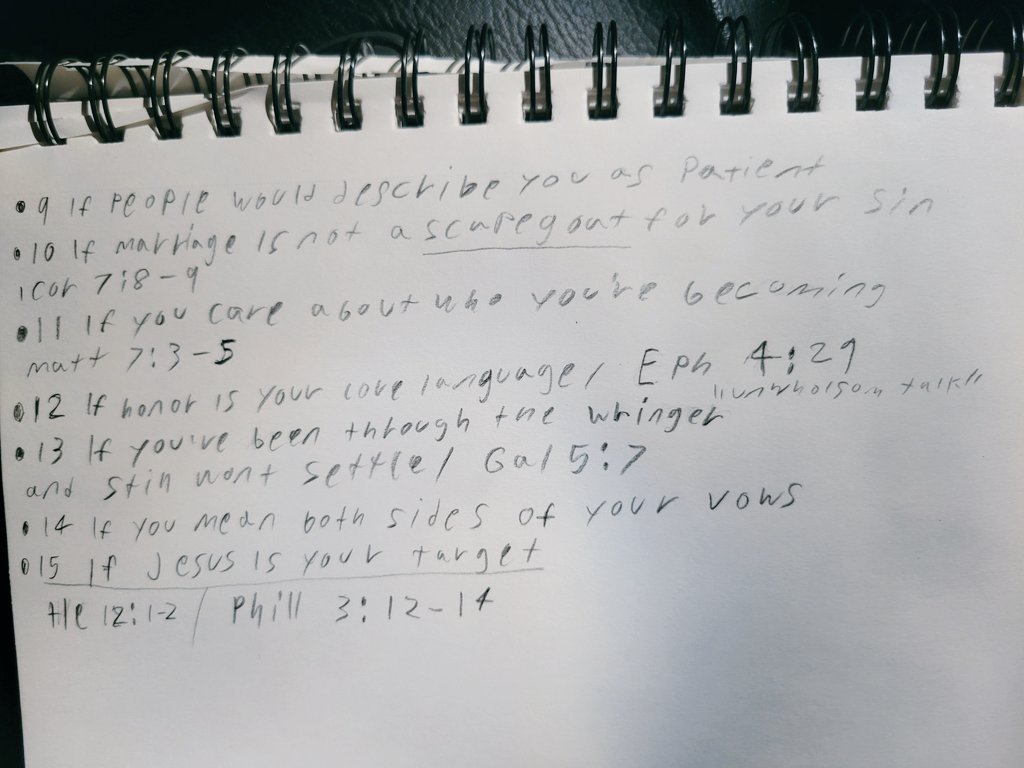 • 9 If people would describe you as Patient
• 10 If marriage is not a scapegoat for your sin
1 cor 7:8-9
• 11 If you care about who you're becoming
matt 7:3-5
• 12 If honor is your love language / Eph 4:29
"unwholsom talk"
• 13 If you've been through the wringer
and still wont settle / Gal 5:7
• 14 If you mean both sides of your vows
• 15 If Jesus is your target
He 12:1-2 / Phill 3:12-14